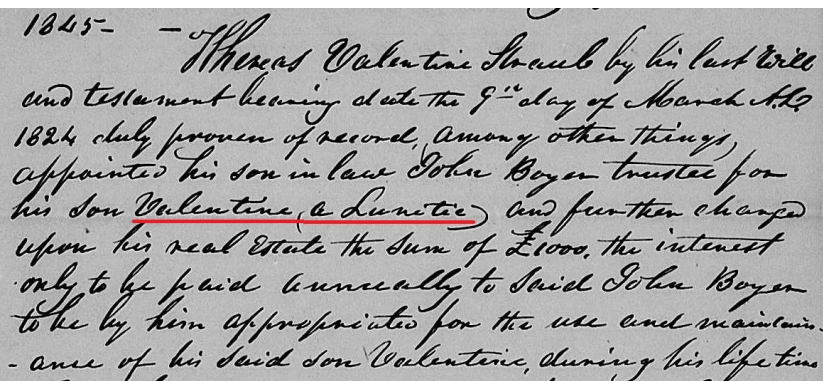 1845- -
Whereas Valentine Straub by his last Will
and testament bearing date the 9th day of March A.D.
1824 duly proven of record, among other things,
appointed his son in law John Boyer trustee for
his son Valentine (a Lunatic) and further charged
upon his real Estate the Sum of £1000, the interest
only to be paid annually to said John Boyer
to be by him appropriated for the use and maintain-
-ance of his said son Valentine, during his life time